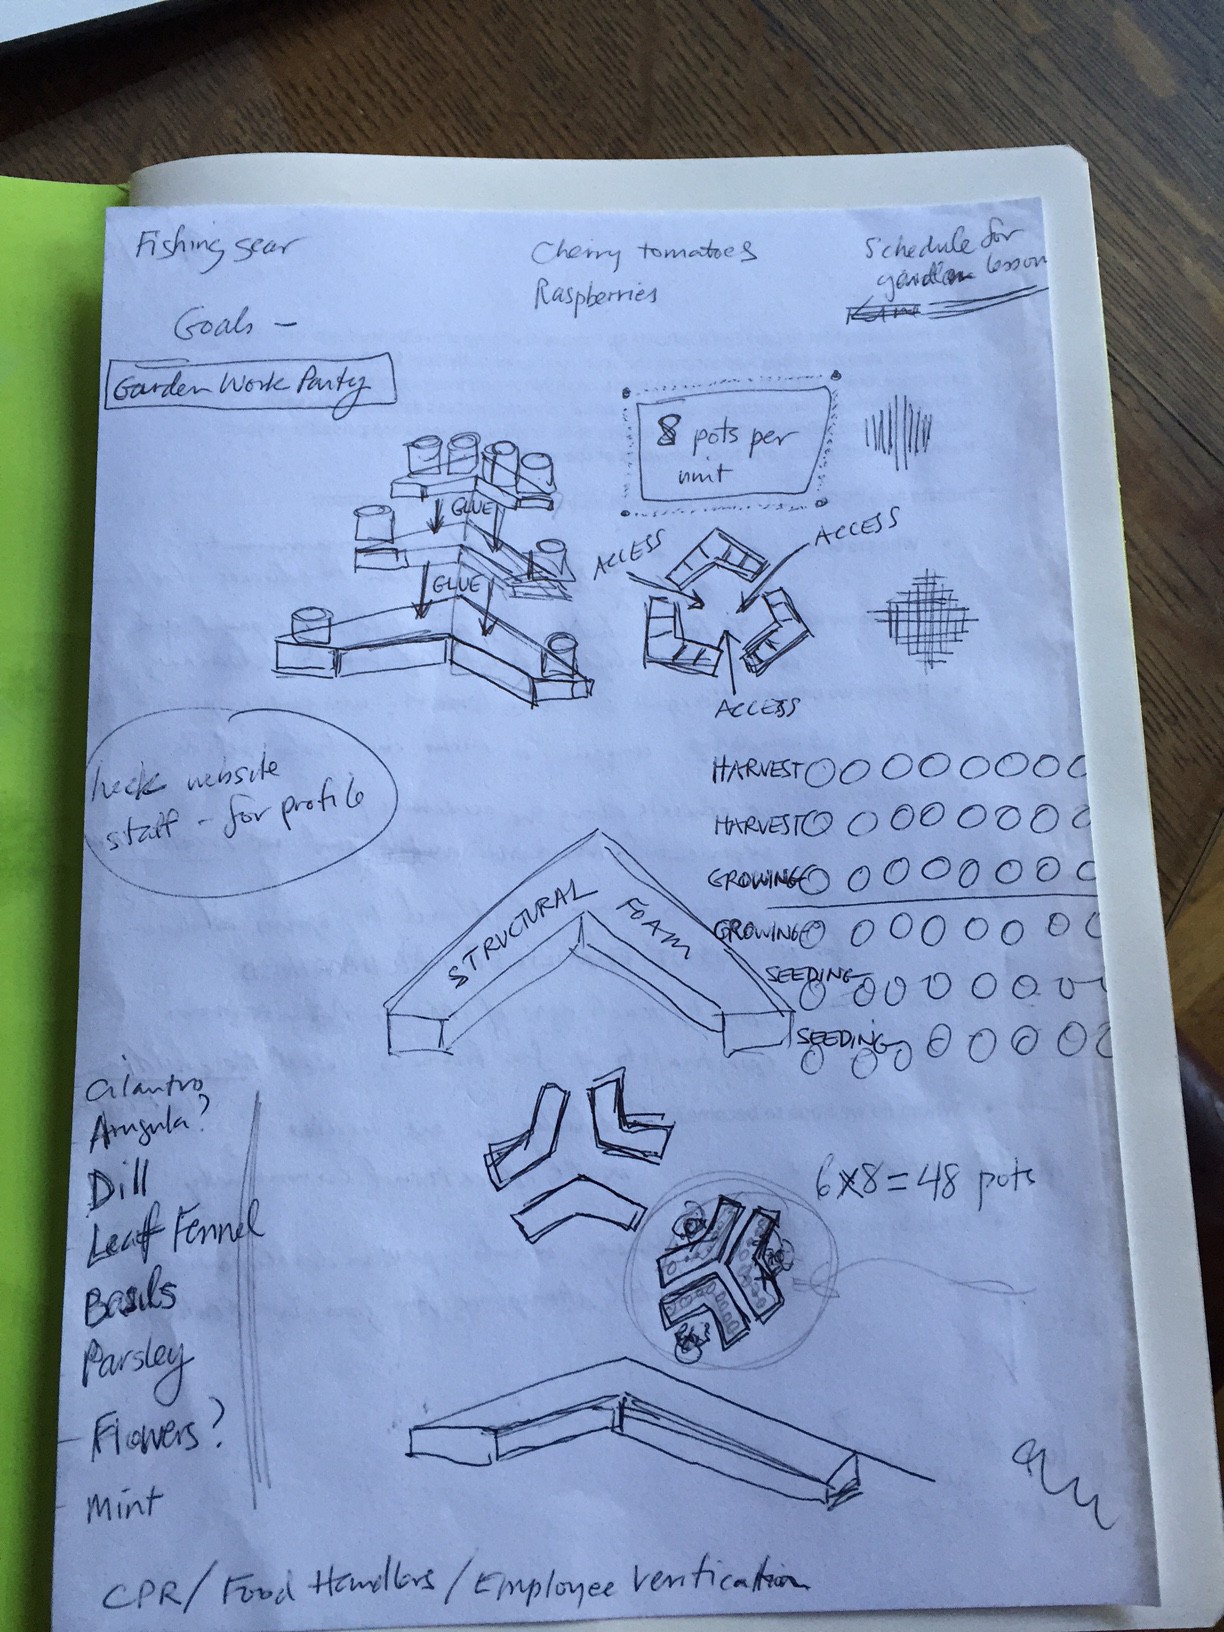 Fishing gear
Cherry tomatoes
Raspberries
Schedule for
garden lesson
Goals -
Garden Work Party
8 pots per
unit
GLUE
GLUE
ACCESS
ACCESS
ACCESS
heck website
staff - for profile
HARVEST
HARVEST
GROWING
GROWING
SEEDING
SEEDING
STRUCTURAL FOAM
Cilantro
Arugula?
Dill
Leaf Fennel
Basils
Parsley
Flowers?
Mint
6x8=48 pots
CPR/Food Handlers/Employee Verification